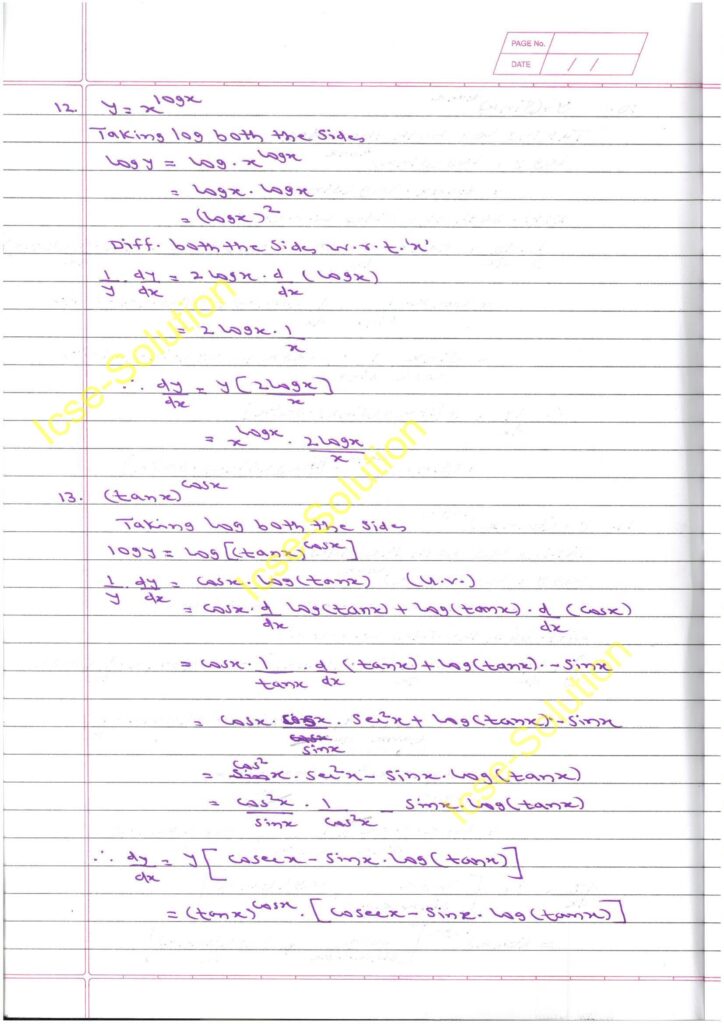 PAGE No.
DATE / /
12. y = x^logx
Taking log both the sides
logy = log . x^logx
= logx . logx
= (logx)^2
Diff. both the sides w.r.t. 'x'
1/y . dy/dx = 2 logx . d/dx (logx)
= 2 logx . 1/x
∴ dy/dx = y [2logx/x]
= x^logx . 2logx/x
13. (tanx)^cosx
Taking log both the sides
logy = log [(tanx)^cosx]
1/y . dy/dx = cosx . log(tanx) (u.v.)
= cosx . d/dx log(tanx) + log(tanx) . d/dx (cosx)
= cosx . 1/tanx . d/dx (tanx) + log(tanx) . -sinx
= cosx . cosx/sinx . sec^2x + log(tanx) . -sinx
= cos^2/sinx . sec^2x - sinx . log(tanx)
= cos^2x/sinx . 1/cos^2x - sinx . log(tanx)
∴ dy/dx = y [cosecx - sinx . log(tanx)]
= (tanx)^cosx . [cosecx - sinx . log(tanx)]
Icse-Solution
Icse-Solution
Icse-Solution